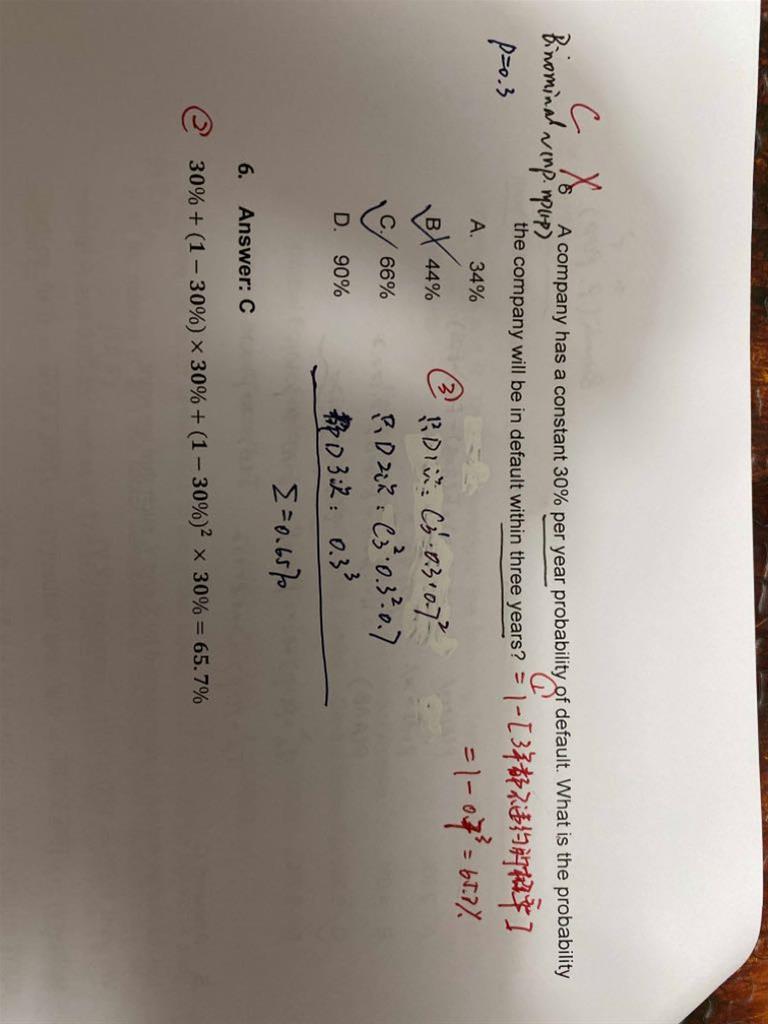 C X
6 A company has a constant 30% per year probability of default. What is the probability
the company will be in default within three years?
Binominal ~(np. np(1-p)
p=0.3
① = 1-[3年都不违约的概率]
= 1-0.7³ = 65.7%
A. 34%
B. 44%
C. 66%
D. 90%
③ 只D1次: C3¹·0.3·0.7²
只D2次: C3²·0.3²·0.7
都D3次: 0.3³
Σ=0.657
6. Answer: C
② 30% + (1 − 30%) × 30% + (1 − 30%)² × 30% = 65.7%